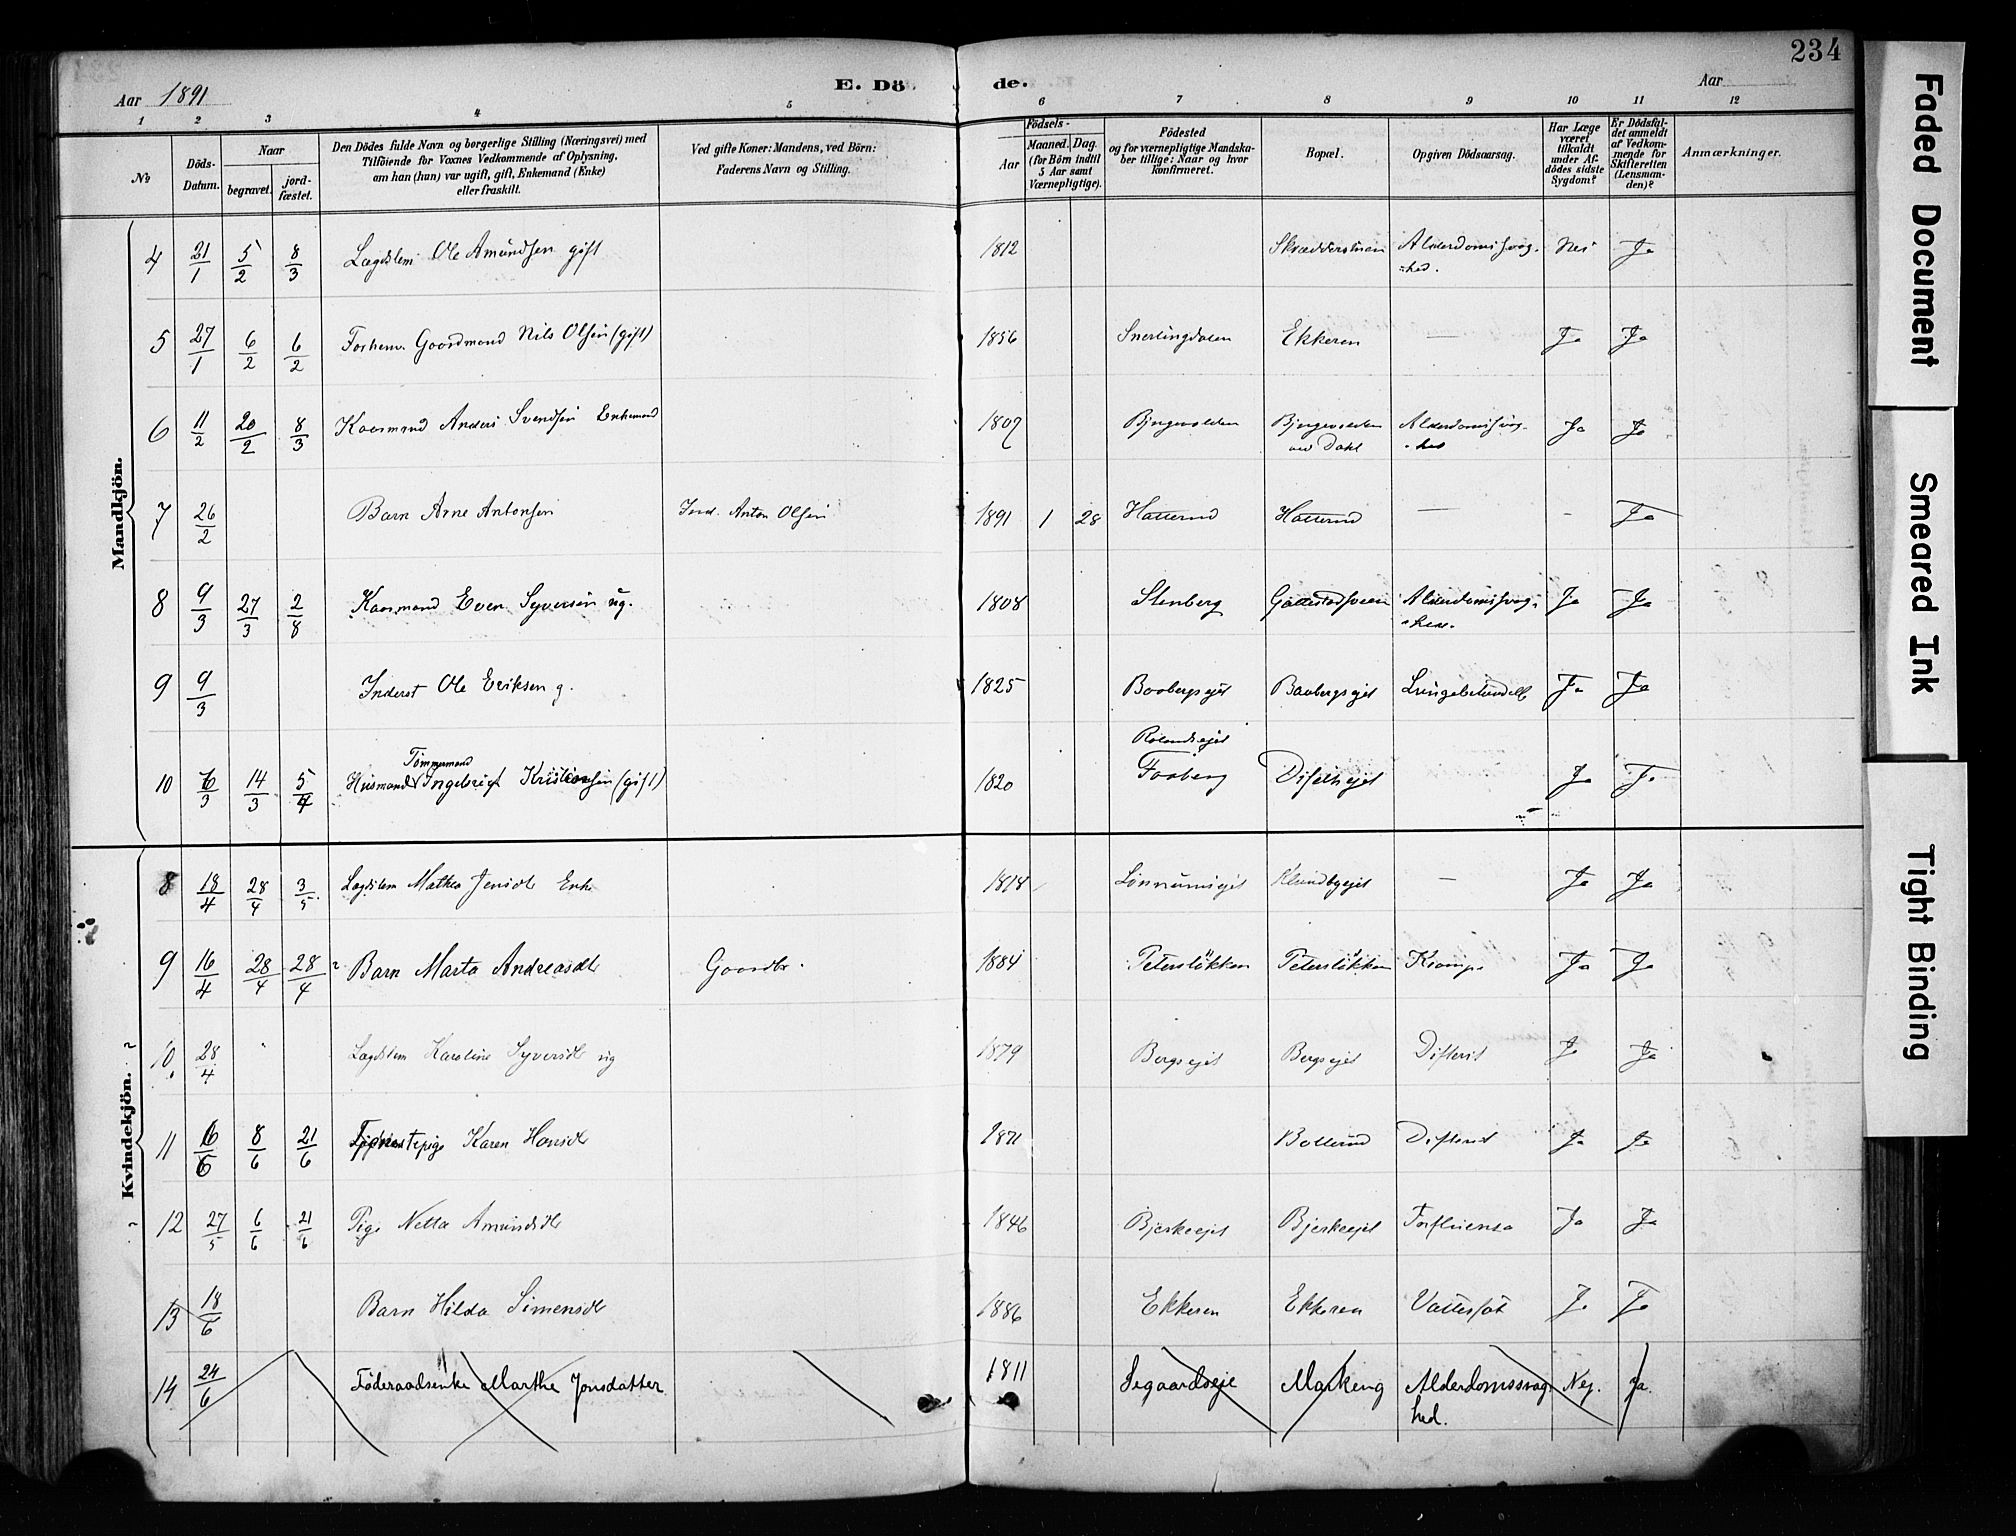 234
Aar 1891
E. Dö
de.
Aar
1 2 3 4 5 6 7 8 9 10 11 12
No
Döds-Datum.
Naar
begravet.
jord-fæstet.
Den Dödes fulde Navn og borgerlige Stilling (Næringsvei) med
Tilföiende for Voxnes Vedkommende af Oplysning,
om han (hun) var ugift, gift, Enkemand (Enke)
eller fraskilt.
Ved gifte Koner: Mandens, ved Börn:
Faderens Navn og Stilling.
Födsels-
Aar
Maaned. Dag.
(for Börn indtil
5 Aar samt
Værnepligtige).
Födested
og for værnepligtige Mandska-
ber tillige: Naar og hvor
konfirmeret.
Bopæl.
Opgiven Dödsaarsag.
Har Læge
været
tilkaldt
under Af-
dödes sidste
Sygdom?
Er Dödsfal-
det anmeldt
af Vedkom-
mende for
Skifteretten
(Lensman-
den)?
Anmærkninger.
Mandkjön.
4 21/1 5/2 8/3 Lægdslem Ole Amundsen gift 1812 Skrædderstuen Alderdomssvag- Nei Ja
=hed.
5 27/1 6/2 6/2 Gaardmand Nils Olsen (gift) 1856 Snertingdalen Ekkeren — Ja Ja
6 11/2 20/2 8/3 Kaarmand Anders Svendsen Enkemand 1807 Ja Ja
ved Dahl
7 26/2 Barn Arne Antonsen Anton Olsen 1891 1 28 Hatterud Hatterud — - Ja
8 9/3 27/3 2/8 Kaarmand Even Syversen ug. 1808 Stenberg Alderdomssvag- Ja Ja
9 9/3 Inderst Ole Eriksen g. 1825 Baabergsejet Baabergsejet Lungebetændelse Ja Ja
Tømmermand
10 6/3 14/3 5/4 Husmand Ingebrigt Kristiansen (gift) 1820 Faaberg Ja Ja
Kvindekjön.
8 18/4 28/4 3/5 Lægdslem Mathea Jensdtr Enke 1818 Lønnumsejet Klundbyejet — Ja Ja
9 16/4 28/4 28/4 ? Barn Marta Andreasdtr Gaardbr. 1884 Petersløkken Petersløkken Krampe Ja Ja
10 28/4 Lægdslem Karoline Syversdtr ug 1879 Bergsejet Bergsejet Difterit Ja Ja
11 6/6 8/6 21/6 Tjenestepige Karen Hansdtr 1871 Bollerud Difterit Ja Ja
12 27/5 6/6 21/6 Pige Netta Amundsdtr 1846 Bjerkeejet Bjerkeejet Ja Ja
13 18/6 Barn Hilda Simensdtr 1886 Ekkeren Ekkeren Vattersot Ja Ja
14 24/6 Føderaadsenke Marthe Jonsdatter 1811 Segaardseje Markeng Alderdomssvag Nej. Ja.
hed.
Faded Document
Smeared Ink
Tight Binding